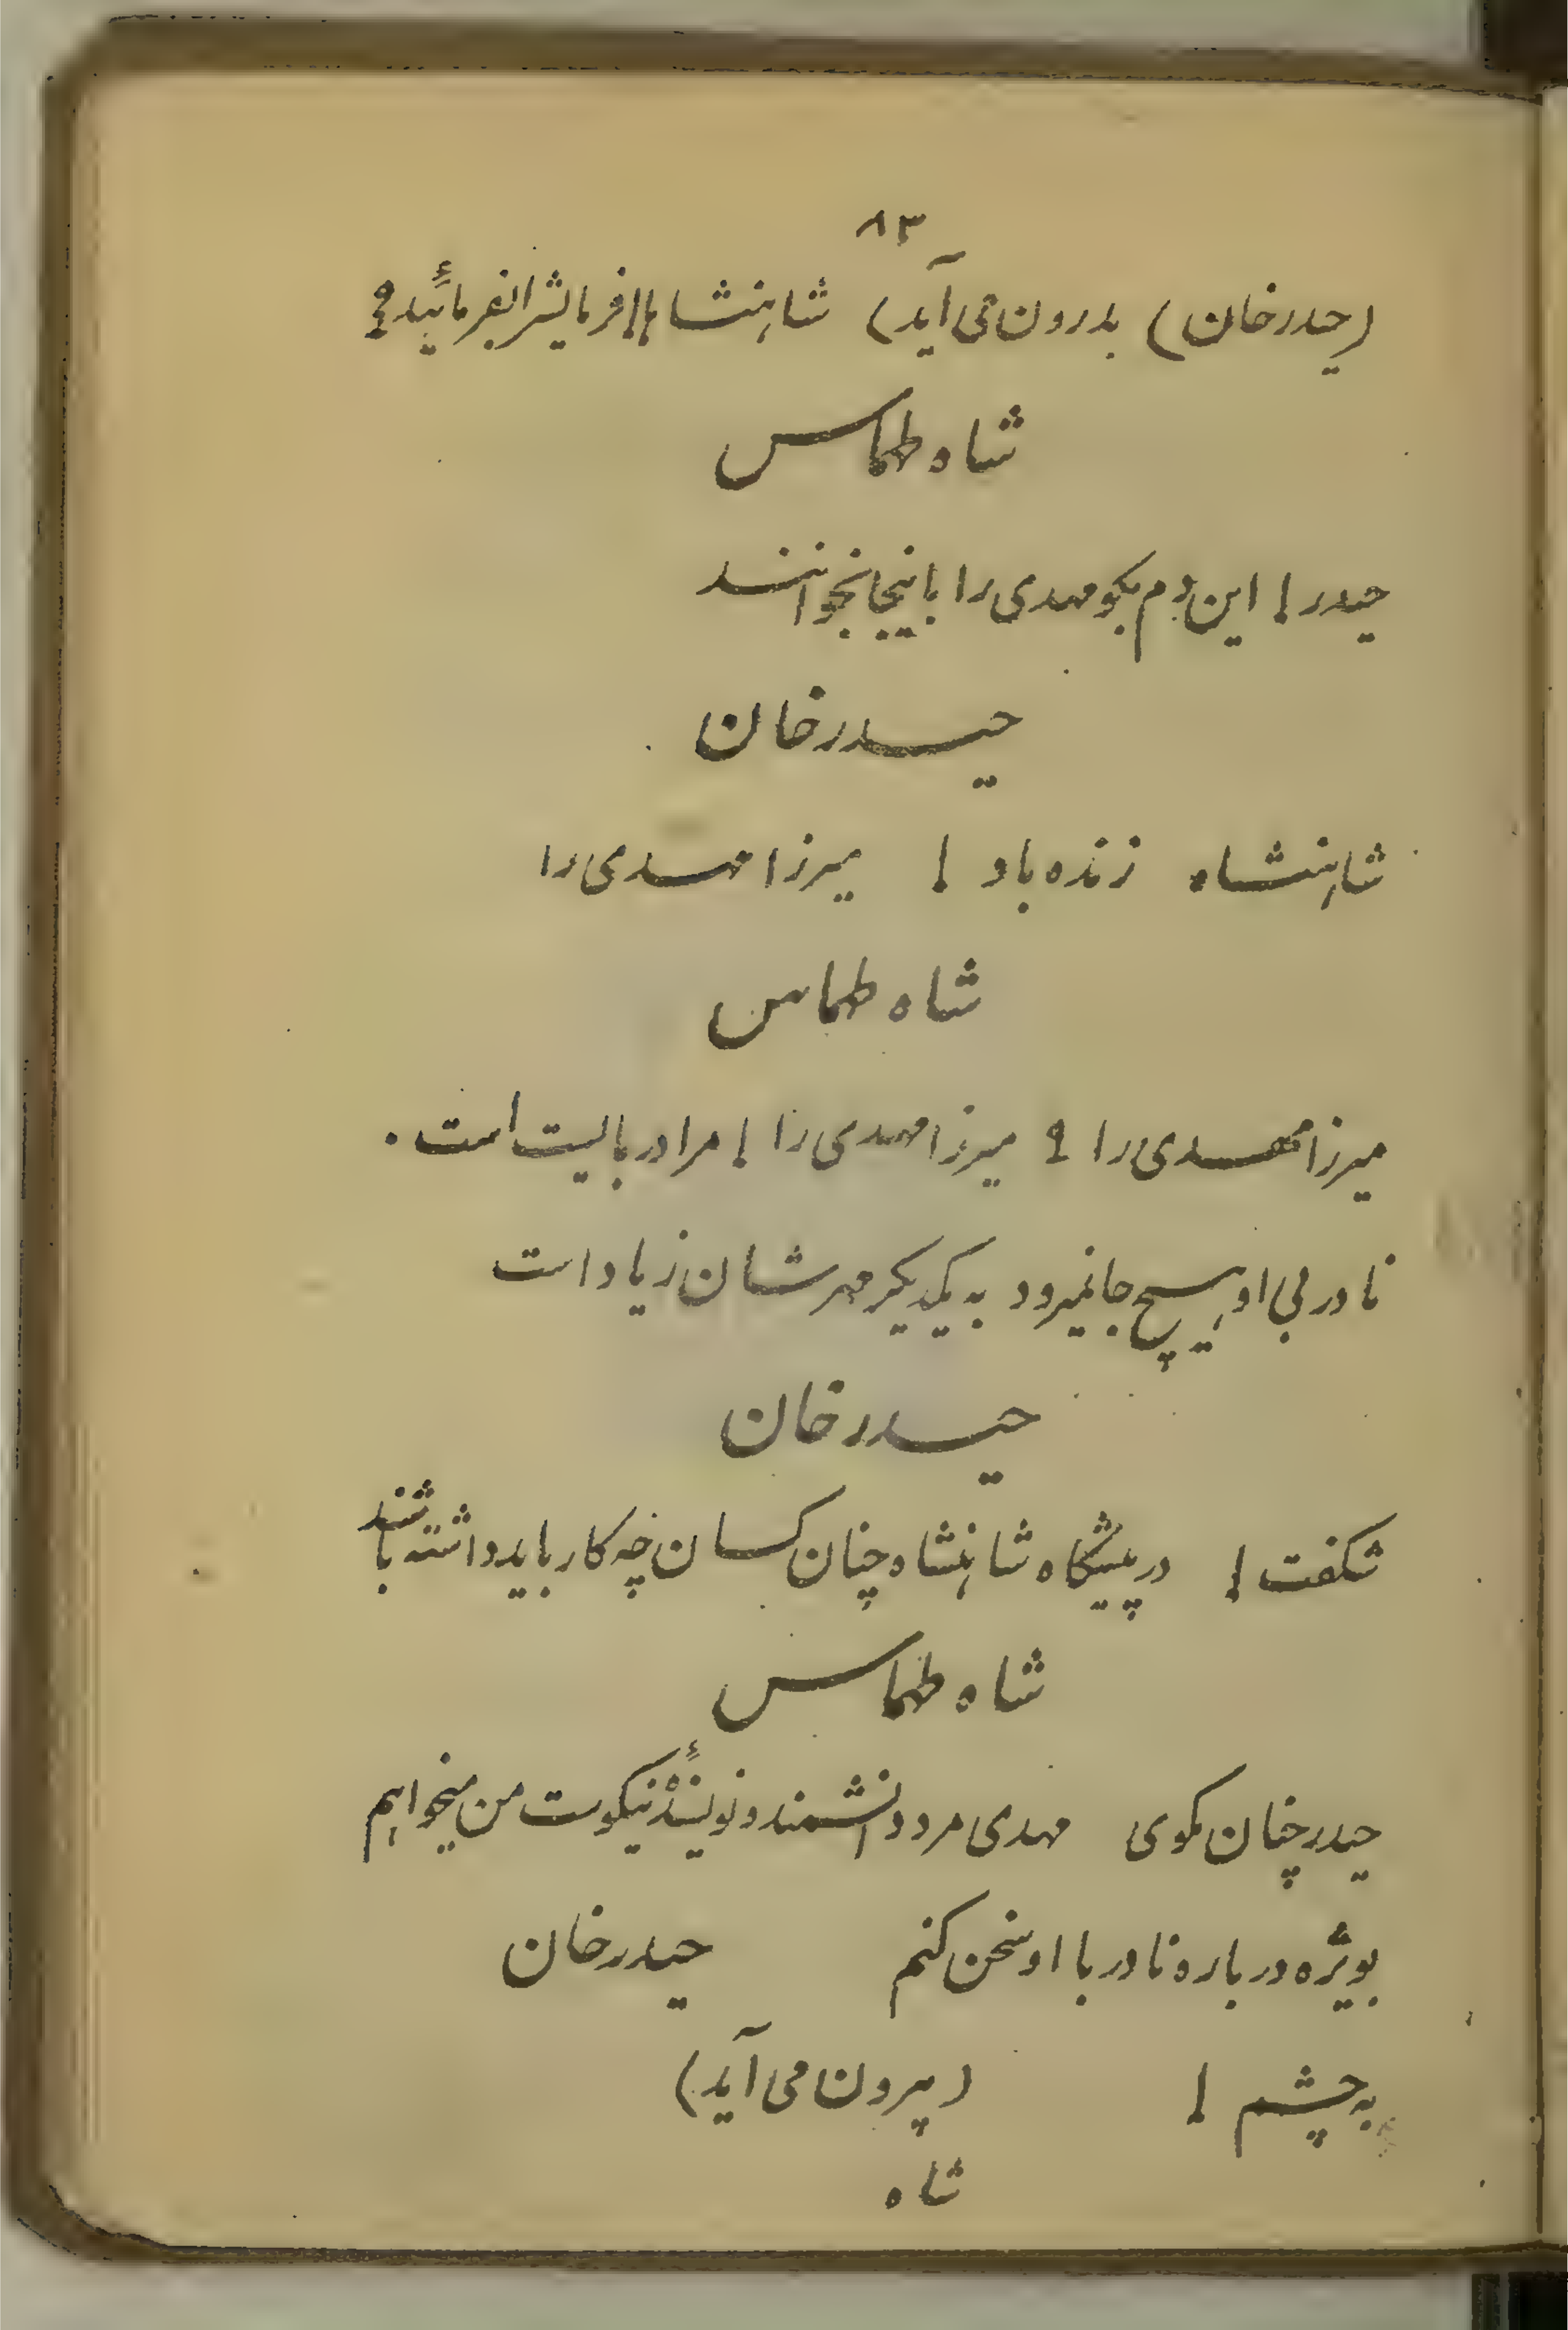 ۸۳
(حیدرخان) بدرون می آید) شاهنشاها! فرمایش را بفرمائید؟
شاه طهماس
حیدر! این دم بگو مهدی را باینجا بخوانند
حیدرخان
شاهنشاه زنده باد ! میرزا مهدی را
شاه طهماس
میرزا مهدی را ؟ میرزا مهدی را ! مرا دربایست است .
نادر بی او هیچ جا نمیرود به یکدیگر مهرشان زیاد است
حیدرخان
شگفت ! در پیشگاه شاهنشاه چنان کسان چه کار باید داشته باشند
شاه طهماس
حیدر چنان مگوی مهدی مرد دانشمند و نویسندۀ نیکوست من میخواهم
بویژه درباره نادر با او سخن کنم حیدرخان
به چشم ! (بیرون می آید)
شاه